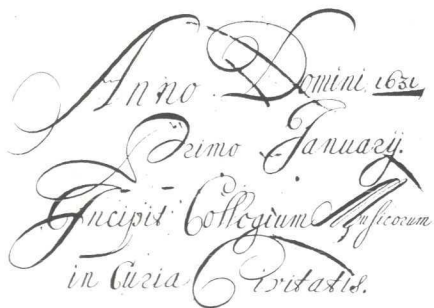 Anno Domini 1631
Primo January.
Incipit Collegium Musicorum
in Curia Civitatis.